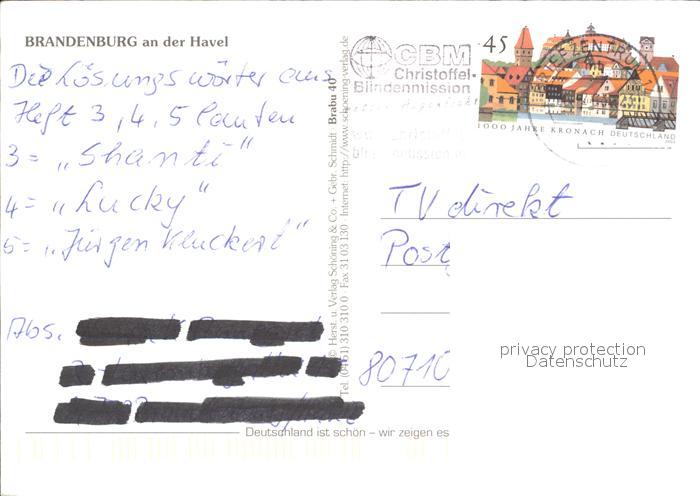 BRANDENBURG an der Havel
Die Lösungswörter aus
Heft 3, 4, 5 lauten
3 = „Shanti"
4 = „Lucky"
5 = „Jürgen Kluckert"
Abs.
© Herst. u. Verlag Schöning & Co. + Gebr. Schmidt · Brabu 40
Tel. (0451) 310 310 0 Fax 31 03 130 Internet: http://www.schoening-verlag.de
CBM
Christoffel-
Blindenmission
45
1000 JAHRE KRONACH DEUTSCHLAND
TV direkt
Post
80710
privacy protection
Datenschutz
Deutschland ist schön – wir zeigen es